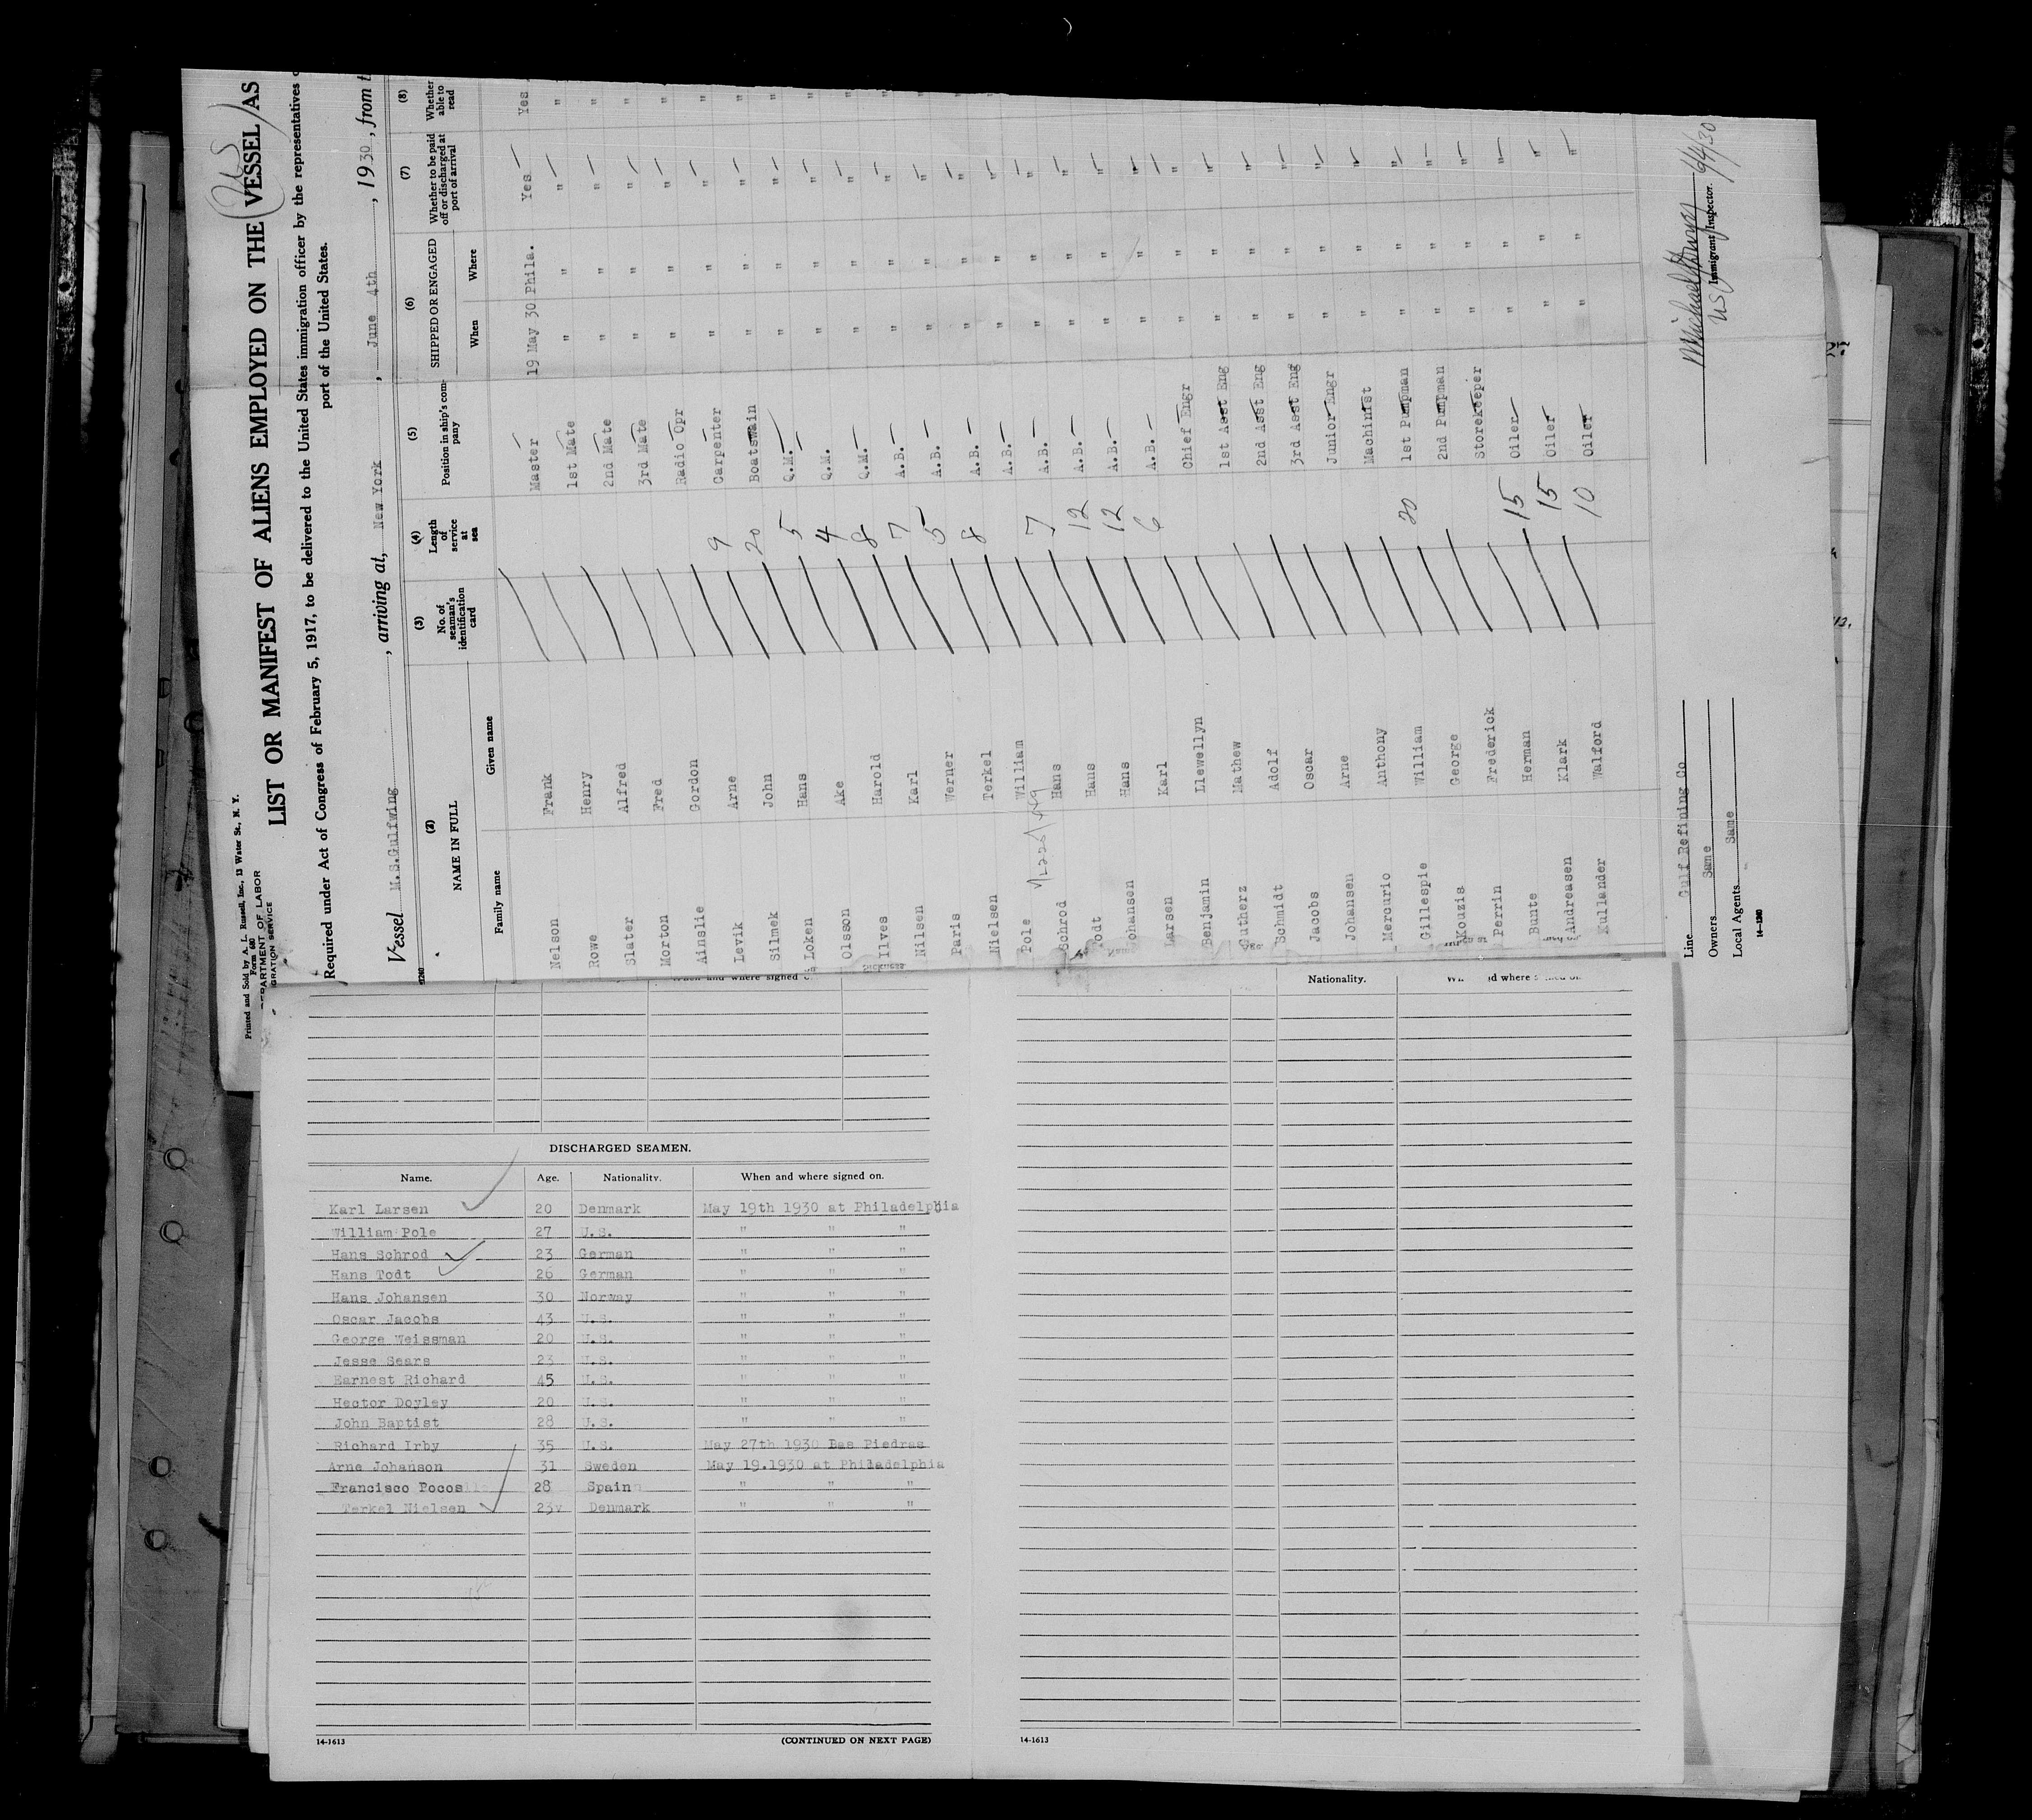 Printed and Sold by A. L. Russell, Inc., 13 Water St., N. Y.
Form 680
DEPARTMENT OF LABOR
GRATION SERVICE
LIST OR MANIFEST OF ALIENS EMPLOYED ON THE VESSEL AS
US
Required under Act of Congress of February 5, 1917, to be delivered to the United States immigration officer by the representatives
port of the United States.
Vessel M.S.Gulfwing , arriving at, New York , June 4th , 1930 , from t
(2) (3) (4) (5) (6) (7) (8)
NAME IN FULL No. of seaman's identification card Length of service at sea Position in ship's company SHIPPED OR ENGAGED Whether to be paid off or discharged at port of arrival Whether able to read
Family name Given name When Where
Nelson Frank Master 19 May 30 Phila. Yes Yes
Rowe Henry 1st Mate " " " "
Slater Alfred 2nd Mate " " " "
Morton Fred 3rd Mate " " " "
Ainslie Gordon Radio Opr " " " "
Levik Arne 9 Carpenter " " " "
Silmek John 20 Boatswain " " " "
Loken Hans 5 Q.M. " " " "
Olsson Ake 4 Q.M. " " " "
Ilves Harold 8 Q.M. " " " "
Nilsen Karl 7 A.B. " " " "
Paris Werner 5 A.B. " " " "
Nielsen Terkel 8 A.B. " " " "
Pole William A.B. " " "
Schrod Hans 7 A.B. " " "
Todt Hans 12 A.B. " " "
Johansen Hans 12 A.B. " " "
Larsen Karl 6 A.B. " " "
Benjamin Llewellyn Chief Engr " " "
Gutherz Mathew 1st Asst Eng " " "
Schmidt Adolf 2nd Asst Eng " " "
Jacobs Oscar 3rd Asst Eng " " "
Johansen Arne Junior Engr " " "
Mercurio Anthony Machinist " " "
Gillespie William 20 1st Pumpman " " "
Kouzis George 2nd Pumpman " " "
Perrin Frederick Storekeeper " " "
Bunte Herman 15 Oiler " " "
Andreasen Klark 15 Oiler " " "
Kullander Walford 10 Oiler " " "
Line Gulf Refining Co
Owners Same
Local Agents Same
14-1240
Immigrant Inspector.
US
Nationality.
DISCHARGED SEAMEN.
Name. Age. Nationality. When and where signed on.
Karl Larsen 20 Denmark May 19th 1930 at Philadelphia
William Pole 27 U.S. " " "
Hans Schrod 23 German " " "
Hans Todt 26 German " " "
Hans Johansen 30 Norway " " "
Oscar Jacobs 43 U.S. " " "
George Weissman 20 U.S. " " "
Jesse Sears 23 U.S. " " "
Earnest Richard 45 U.S. " " "
Hector Doyley 20 U.S. " " "
John Baptist 28 U.S. " " "
Richard Irby 35 U.S. May 27th 1930 Bas Piedras
Arne Johanson 31 Sweden May 19.1930 at Philadelphia
Francisco Pocos 28 Spain " " "
Terkel Nielsen 23 Denmark " " "
14-1613
(CONTINUED ON NEXT PAGE)
14-1613